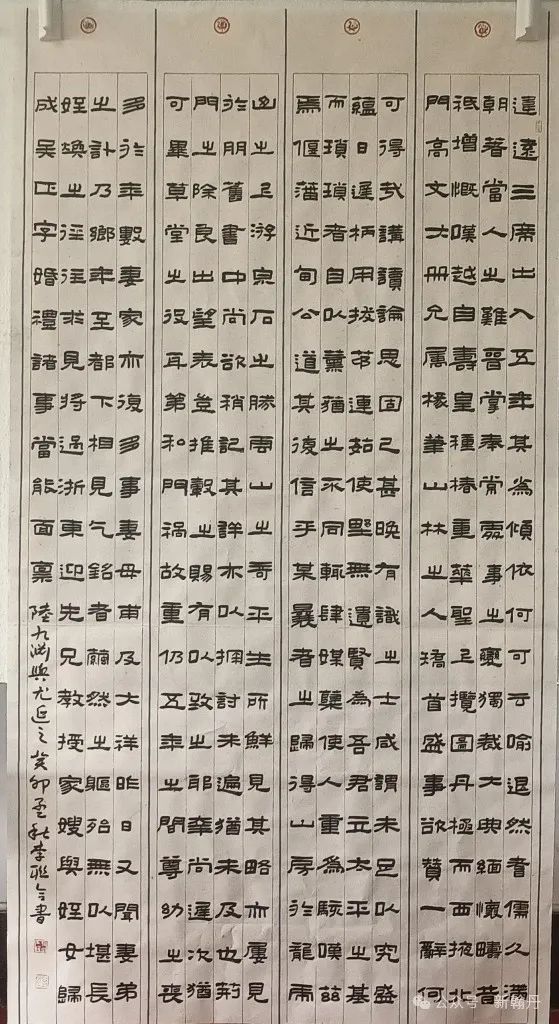 違遠三席出入五年其為傾依何可云喻退然者儒久滿
朝著當人之難晉掌奉常處事之變獨裁大典緬懷疇昔
祗增慨嘆越自壽皇種椿重華聖上攬圖丹極而西掖北
門高文大冊允屬椽筆山林之人矯首盛事欲贊一辭何
可得哉講讀論思固已甚晚有識之士咸謂未足以究盛
蘊日遲柄用拔茅連茹使野無遺賢為吾君立太平之基
而瑣瑣者自以薰蕕之不同輒肆媒聽使人重為駭嘆茲
焉偃藩近甸公道其復信乎某曩者之歸得山房於龍虎
山之上游泉石之勝雲山之奇平生所鮮見其略亦屢見
於朋舊書中尚欲稍記其詳亦以搜討未遍猶未及也荊
門之除良出望表豈推轂之賜有以致之耶幸尚遲次猶
可畢草堂之役耳第私門禍故重仍五年之間尊幼之喪
多於年數妻家亦復多事妻母甫及大祥昨日又聞妻弟
之訃乃鄉年至都下相見乞銘者繭然之軀殆無以堪長
姪煥之徑往求見將過浙東迎先兄教授家嫂與姪女歸
成吳正字婚禮諸事當能面稟 陸九淵與尤延之 癸卯孟秋李聯合書
公众号·新翰丹